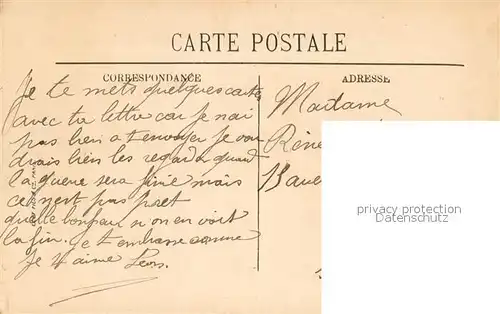 CARTE POSTALE
CORRESPONDANCE
ADRESSE
Je te mets quelques cartes
avec ta lettre car je nai
pas bien a t envoyer je vou
drais bien les regarda quand
la guere sera finie mais
ce nert pas pret
quelle bonheur si on en voit
la fin. je t embrasse comme
Je t'aime Leon.
Madame
Réne
Bau
privacy protection
Datenschutz